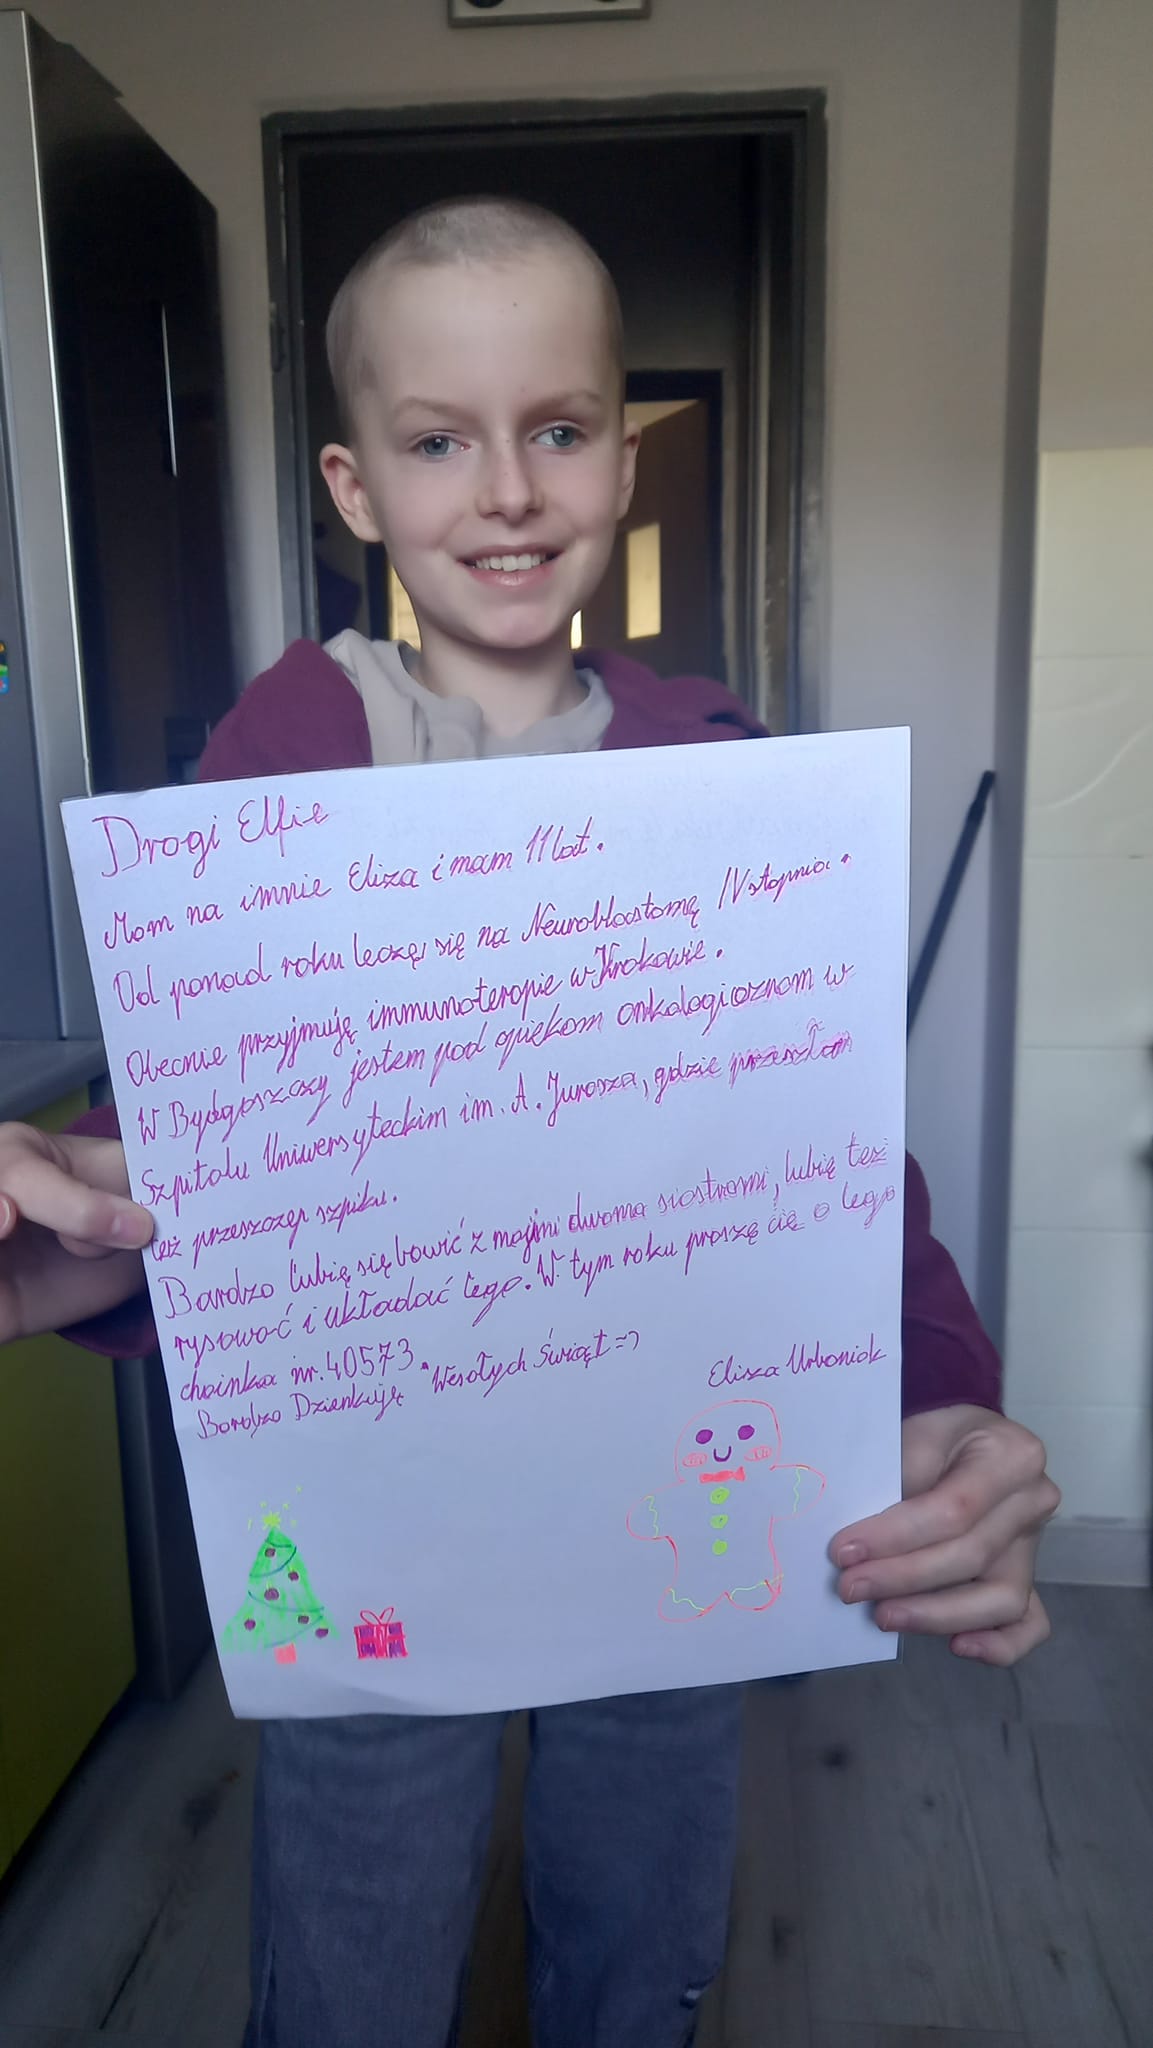 Drogi Elfie
Mam na imnie Eliza i mam 11 lat.
Od ponad roku leczę się na Neuroblastomę IV stopnia.
Obecnie przyjmuję immunoterapie w Krakowie.
W Bydgoszczy jestem pod opiekom onkologicznom w
Szpitalu Uniwersyteckim im. A. Jurasza, gdzie przeszłam
też przeszczep szpiku.
Bardzo lubię się bawić z mojimi dwoma siostrami, lubię też
rysować i układać lego. W tym roku proszę cię o lego
choinka nr. 40573.
Bardzo Dzienkuję Wesołych Świąt =)
Eliza Urbaniak